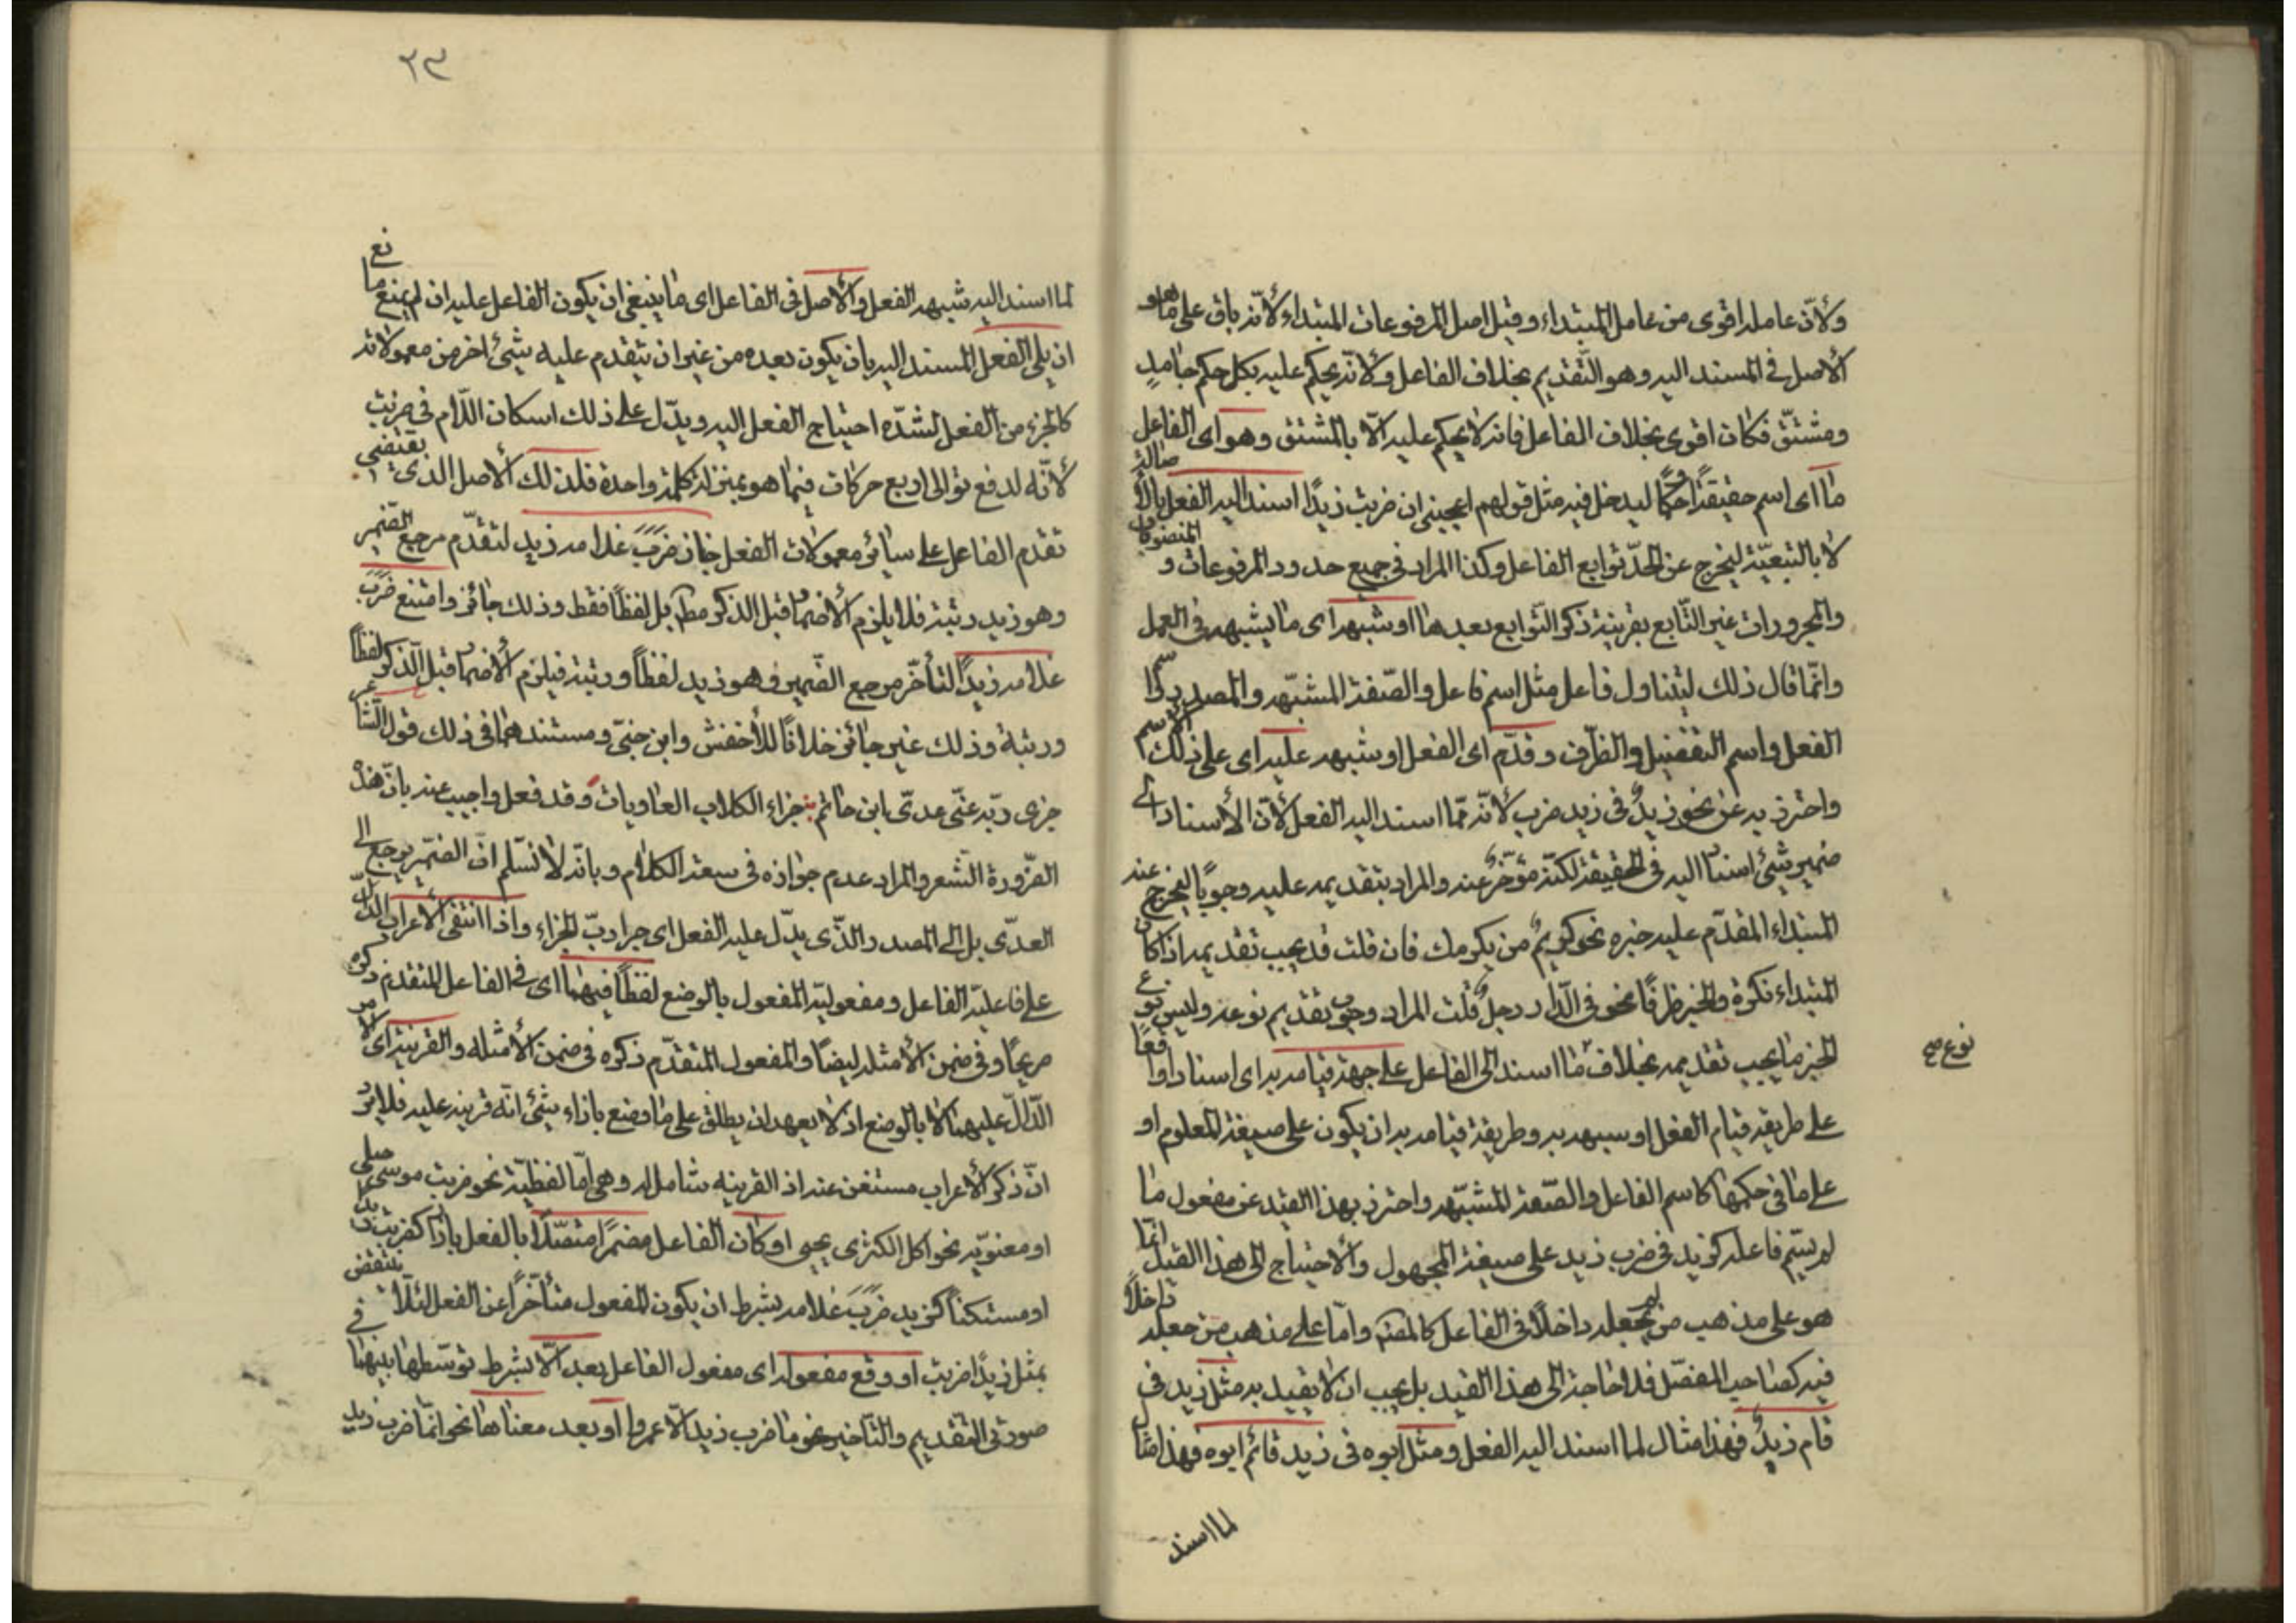 ولأنّ عامله اقوى من عامل المبتداء وقيل اصل المرفوعات المبتداء لأنّه باق على ما هو
الأصل فى المسند اليه وهو التّقديم بخلاف الفاعل ولأنّه يحكم عليه بكل حكم جامدٍ
ومشتقّ فكان اقوى بخلاف الفاعل فانه لا يحكم عليه الّا بالمشتق وهو اى الفاعل
ما اى اسم حقيقةً او حكمًا ليدخل فيه مثل قولهم اعجبنى ان ضربت زيدًا اسند اليه الفعل بالأصالة
لا بالتبعيّة ليخرج عن الحدّ توابع الفاعل وكذا المراد فى جميع حدود المرفوعات و المنصوبات
والمجرورات غير التّابع بقرينة ذكر التّوابع بعدها او شبهه اى ما يشبهه فى العمل
وانّما قال ذلك ليتناول فاعل مثل اسم فاعل والصّفة المشبّهه والمصدر واسم
الفعل واسم التفضيل والظّرف وقدّم اى الفعل او شبهه عليه اى على ذلك الاسم
واحترز به عن نحو زيدٌ فى زيد ضرب لأنّه ممّا اسند اليه الفعل لأنّ الأسناد الى
ضمير شئ اسناد اليه فى الحقيقة لكنّه مؤخّرٌ عنه والمراد بتقديمه عليه وجوبًا ليخرج عنه
المبتداء المقدّم عليه خبره نحو كريمٌ من يكرمك فان قلت قد يجب تقديمه اذا كان
المبتداء نكرة والخبر ظرفًا نحو فى الدّار رجلٌ قلت المراد وجوب تقديم نوعه وليس نوع
الخبر ما يجب تقديمه بخلاف ما اسند الى الفاعل على جهة قيامه به اى اسنادا واقعًا
نوع صح
على طريقة قيام الفعل او شبهه به وطريقة قيامه به ان يكون على صيغة المعلوم او
على ما فى حكمها كاسم الفاعل والصّفة المشبّهه واحترز بهذا القيد عن مفعول ما
لم يسّم فاعله كزيد فى ضرب زيد على صيغة المجهول والأحتياج الى هذا القيد انّما
هو على مذهب من لم يجعله داخلًا فى الفاعل كالمصنّف وامّا على مذهب من جعله داخلًا
فيه كصاحب المفصّل فلا حاجة الى هذا القيد بل يجب ان لا يقيد به مثل زيد فى
قام زيدٌ فهذا مثال لما اسند اليه الفعل ومثل ابوه فى زيد قائم ابوه فهذا مثال
لما اسند
٣٣
لما اسند اليه شبهه الفعل والأصل فى الفاعل اى ما ينبغى ان يكون الفاعل عليه ان لم يمنع مانع
ان يلى الفعل المسند اليه بان يكون بعده من غير ان يتقدم عليه شئ اخر من معمولاته
كالجزء من الفعل لشدّه احتياج الفعل اليه ويدّل على ذلك اسكان اللّام فى ضربت
لأنّه لدفع توالى اربع حركات فيما هو بمنزلة كلمة واحدة فلذلك الأصل الذى يقتضى
تقدم الفاعل على سائر معمولات الفعل جاز ضَرَبَ غلامه زيد لتقدّم مرجع الضمير
وهو زيد رتبة فلا يلزم الأضمار قبل الذكر مط بل لفظًا فقط وذلك جائز وامتنع ضَرَبَ
غلامه زيدًا لتأخّر مرجع الضّمير وهو زيد لفظًا ورتبة فيلزم الأضمار قبل الذكر لفظًا
ورتبة وذلك غير جائز خلافًا للأخفش وابن جنّى ومستندهما فى ذلك قول الشاعر
جزى ربّه عنّى عدىّ ابن حاتم جزاء الكلاب العاويات وقد فعل واجيب عنه بانّ هذا
الضّرورة الشّعر والمراد عدم جوازه فى سعة الكلام وبانّه لا نسلّم انّ الضّمير يرجع الى
العدّى بل الى المصدر الذّى يدّل عليه الفعل اى جزا ربّ الجزاء واذا انتفى الأعراب الدّال
على فاعليّة الفاعل ومفعوليّة المفعول بالوضع لفظًا فيهما اى فى الفاعل المتقدم ذكره
صريحًا وفى ضمن الأمثله ايضًا والمفعول المتقدّم ذكره فى ضمن الأمثله والقرينة اى الأمر
الدّالّ عليهما لا بالوضع اذ لا يعهد ان يطلق على ما وضع بازاء شئ انّه قرينة عليه فلا يرد
انّ ذكر الأعراب مستغن عنه اذ القرينه شامل له وهى امّا لفظيّة نحو ضربت موسى حبلى
او معنويّه نحو اكل الكمثرى يحيى او كان الفاعل مضمرًا متصّلًا بالفعل بارزًا كضربت زيدًا
او مستكنًا كزيد ضَرَبَ غلامه بشرط ان يكون المفعول متأخرًا عن الفعل لئلّا ينتقض
بمثل زيدًا ضربت او وقع مفعوله اى مفعول الفاعل بعد الّا بشرط توسّطها بينهما فى
صورتى التّقديم والتّاخير نحو ما ضرب زيد الّا عمروا او بعد معناها نحو انّما ضرب زيد